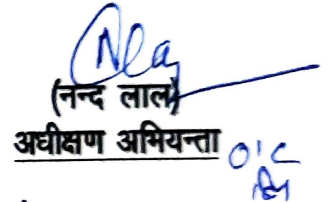 (नन्द लाल)
अधीक्षण अभियन्ता
O'C